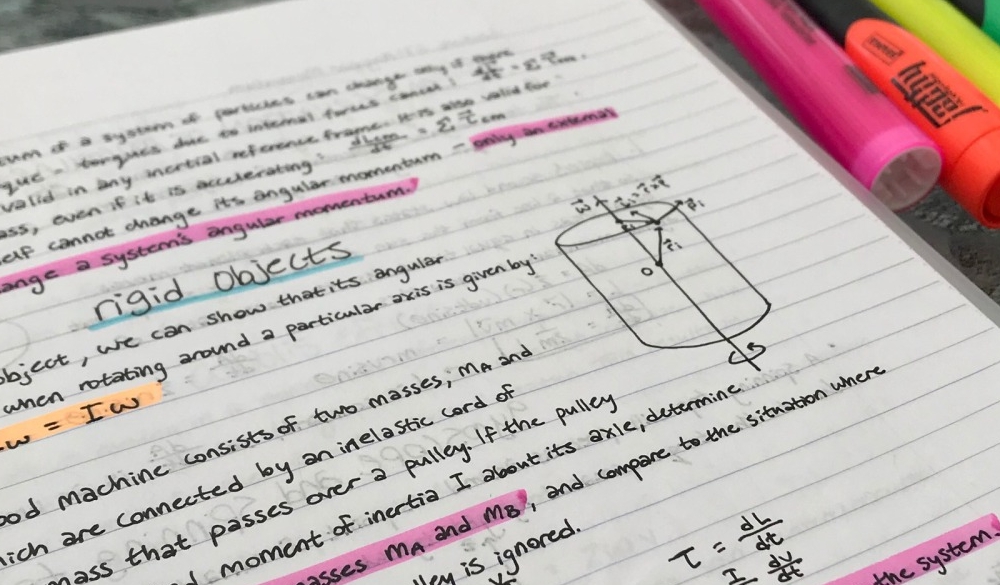 um of a system of particles can change only if there
que - torques due to internal forces cancel! dL/dt = Σ τ
valid in any inertial reference frame. It is also valid for
ass, even if it is accelerating: dLcm/dt = Σ τcm
elf cannot change its angular momentum - only an external
ange a system's angular momentum.
rigid objects
object, we can show that its angular
when rotating around a particular axis is given by:
ω = Iω
ood machine consists of two masses, mA and
hich are connected by an inelastic cord of
mass that passes over a pulley. If the pulley
moment of inertia I about its axle, determine
asses mA and mB, and compare to the situation where
lley is ignored.
τ = dL/dt
I dv/dt
the system.
O